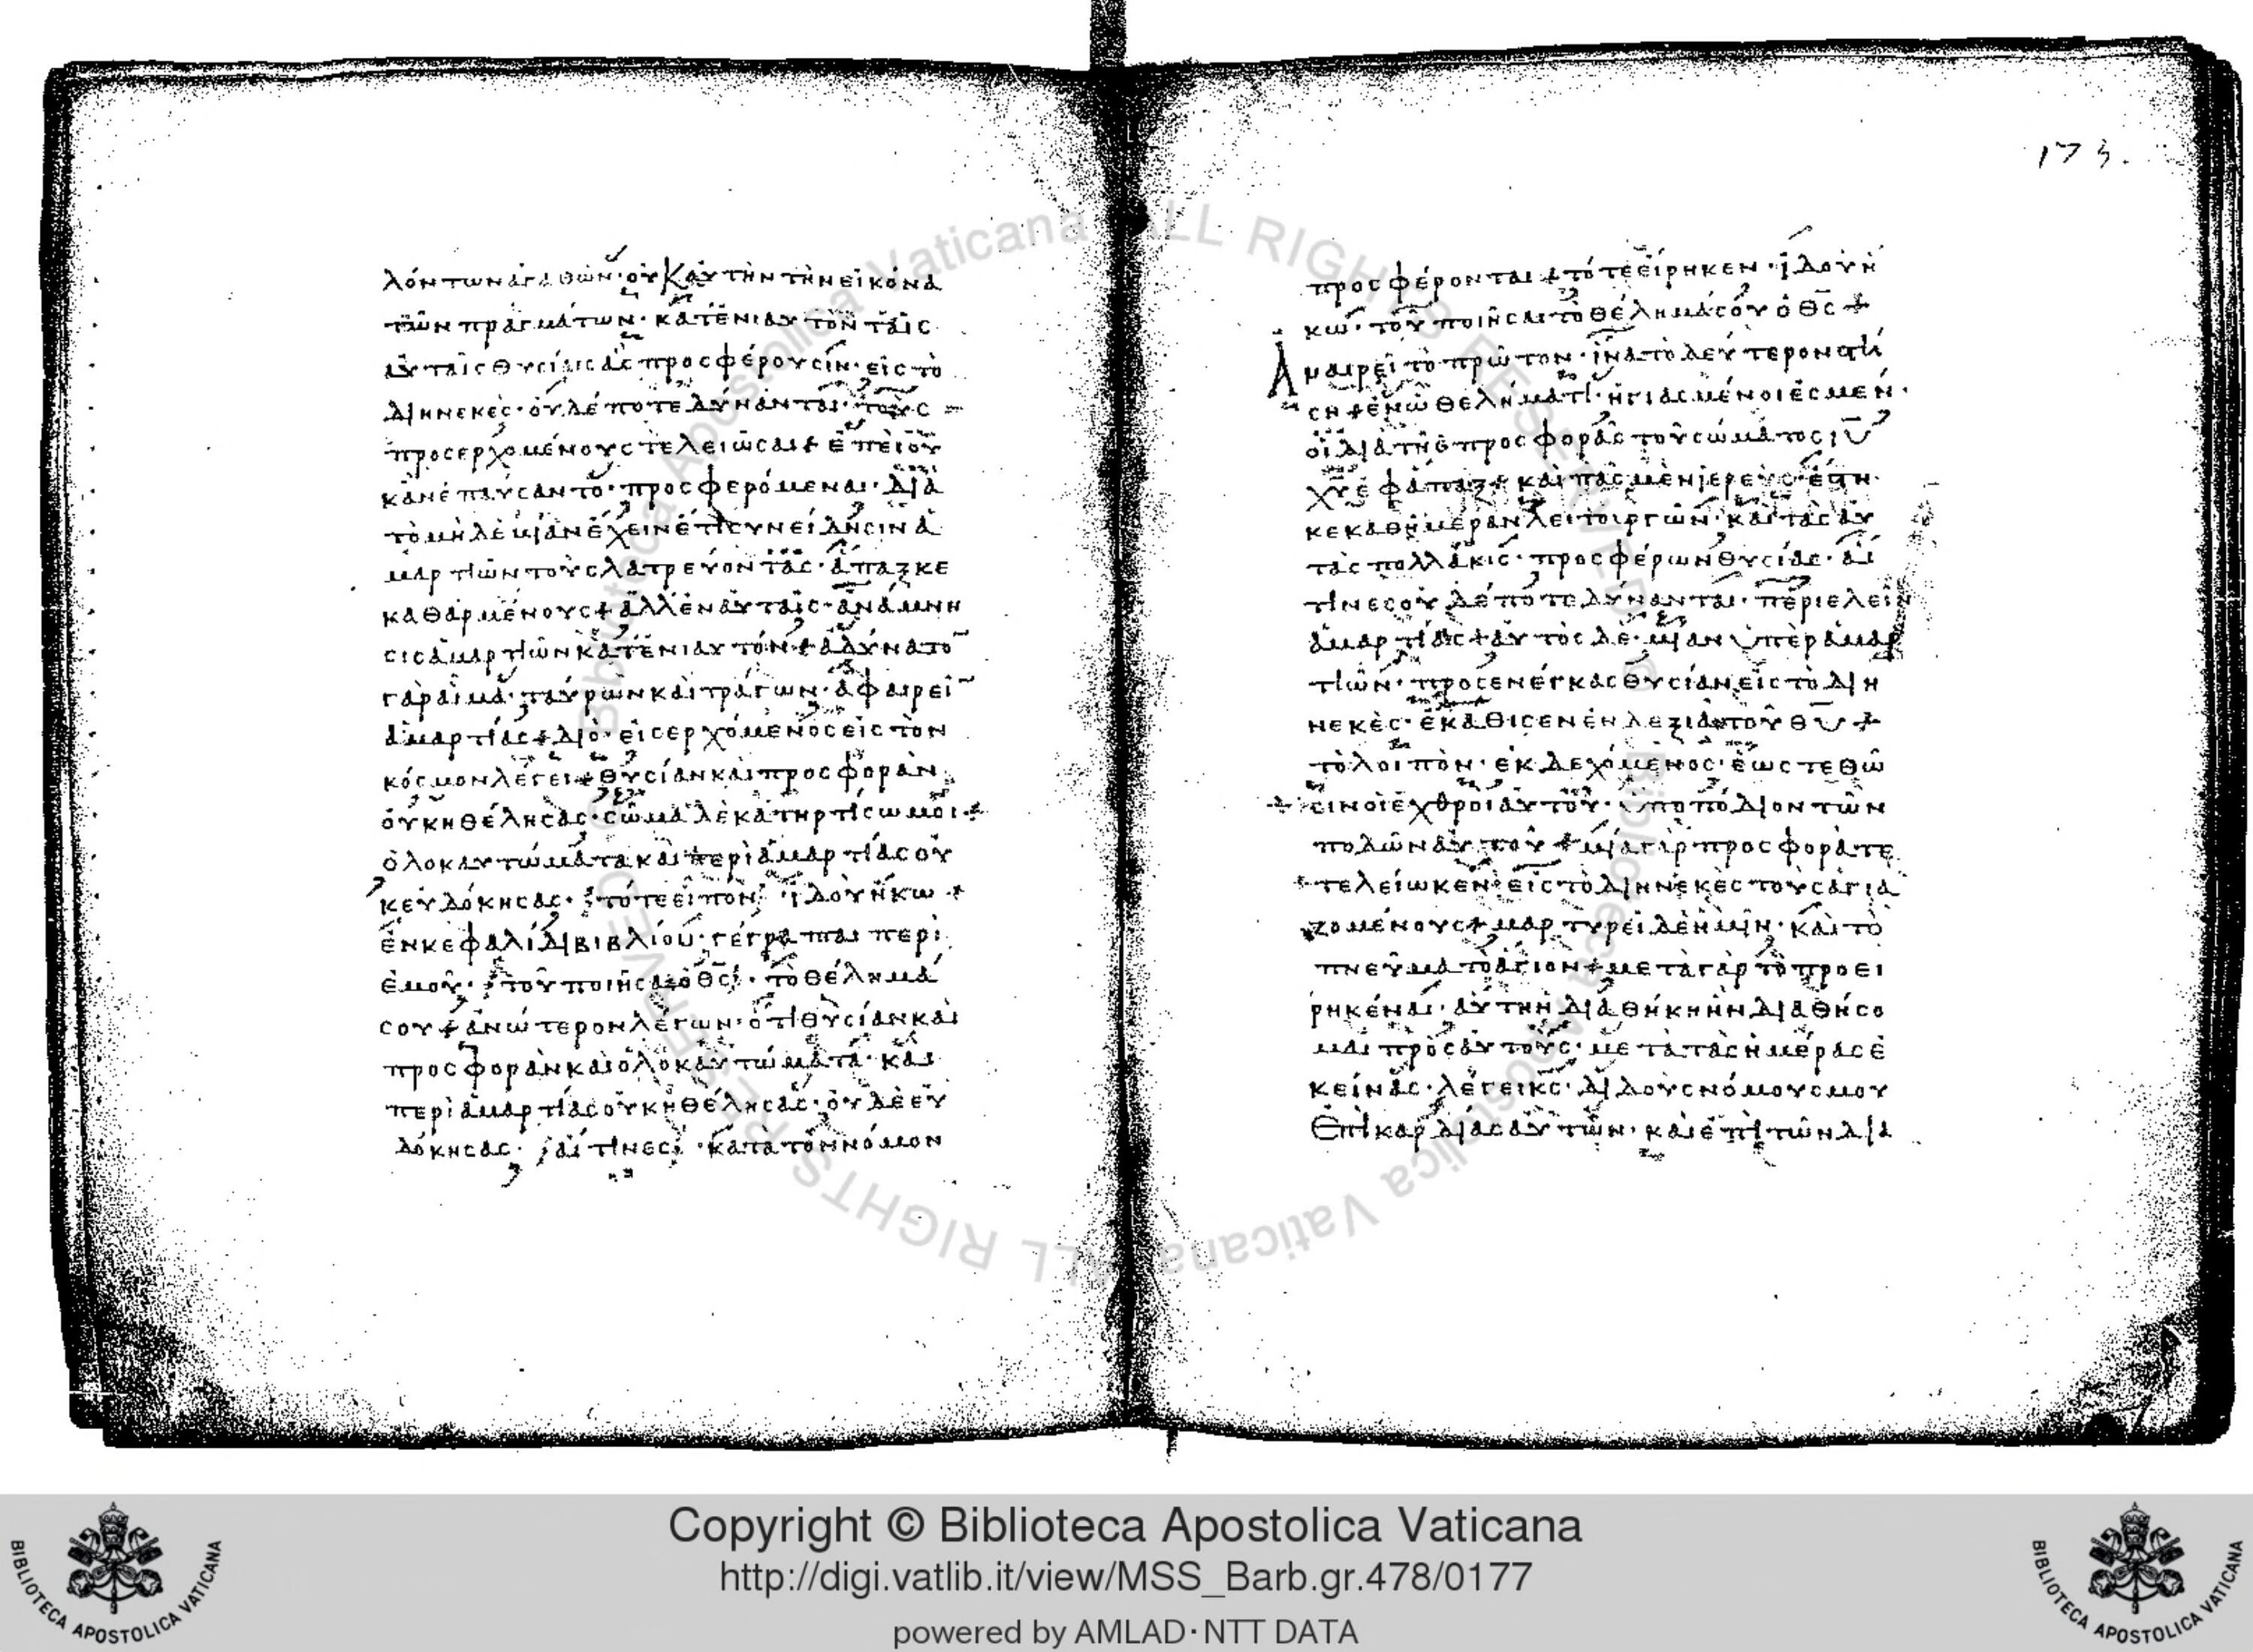 173.
λόντων ἀγαθῶν· οὐκ αὐτὴν τὴν εἰκόνα
τῶν πραγμάτων· κατ ἐνιαυτὸν ταῖς
αὐταῖς θυσίαις ἃς προσφέρουσιν· εἰς τὸ
διηνεκὲς· οὐδέποτε δύνανται· τοὺς
προσερχομένους τελειῶσαι + ἐπεὶ οὐ
κἂν ἐπαύσαντο· προσφερόμεναι· διὰ
τὸ μηδεμίαν ἔχειν ἔτι συνείδησιν ἁ
μαρτιῶν τοὺς λατρεύοντας· ἅπαξ κε
καθαρμένους + ἀλλ ἐν αὐταῖς· ἀνάμνη
σις ἁμαρτιῶν κατ ἐνιαυτόν + ἀδύνατο̅
γὰρ αἷμα· ταύρων καὶ τράγων· ἀφαιρεῖ̅
ἁμαρτίας + διὸ· εἰσερχόμενος εἰς τὸν
κόσμον λέγει + θυσίαν καὶ προσφορὰν
οὐκ ἠθέλησας· σῶμα δὲ κατηρτίσω μοι· +
ὁλοκαυτώματα καὶ περὶ ἁμαρτίας οὐ
κ εὐδόκησας· τότε εἶπον· ἰδοὺ ἥκω +
ἐν κεφαλίδι βιβλίου· γέγραπται περὶ
ἐμοῦ· τοῦ ποιῆσαι ὁ θ̅ς̅· τὸ θέλημά
σου + ἀνώτερον λέγων· ὅτι θυσίαν καὶ
προσφορὰν καὶ ὁλοκαυτώματα· καὶ
περὶ ἁμαρτίας οὐκ ἠθέλησας· οὐδὲ εὐ
δόκησας· αἵτινες· κατὰ τὸν νόμον
προσφέρονται + τότε εἴρηκεν· ἰδοὺ ἥ
κω· τοῦ ποιῆσαι τὸ θέλημά σου ὁ θ̅ς̅ +
Ἀναιρεῖ τὸ πρῶτον· ἵνα τὸ δεύτερον στή
ση + ἐν ᾧ θελήματι· ἡγιασμένοι ἐσμέν·
οἱ διὰ τῆς προσφορᾶς τοῦ σώματος ι̅υ̅
χ̅υ̅ ἐφάπαξ + καὶ πᾶς μὲν ἱερεὺς· ἕστη
κε καθ ἡμέραν λειτουργῶν· καὶ τὰς αὐ
τὰς πολλάκις· προσφέρων θυσίας· αἵ
τινες οὐδέποτε δύνανται· περιελεῖν
ἁμαρτίας + αὐτὸς δὲ· μίαν ὑπὲρ ἁμαρ
τιῶν· προσενέγκας θυσίαν εἰς τὸ διη
νεκὲς· ἐκάθισεν ἐν δεξιᾷ τοῦ θ̅υ̅ +
τὸ λοιπὸν· ἐκδεχόμενος· ἕως τεθῶ
σιν οἱ ἐχθροὶ αὐτοῦ· ὑποπόδιον τῶν
ποδῶν αὐτοῦ + μιᾷ γὰρ προσφορᾷ τε
τελείωκεν· εἰς τὸ διηνεκὲς τοὺς ἁγια
ζομένους + μαρτυρεῖ δὲ ἡμῖν· καὶ τὸ
πνεῦμα τὸ ἅγιον + μετὰ γὰρ τὸ προει
ρηκέναι· αὕτη ἡ διαθήκη ἣν διαθήσο
μαι πρὸς αὐτοὺς· μετὰ τὰς ἡμέρας ἐ
κείνας· λέγει κ̅ς̅· διδοὺς νόμους μου
Ἐπὶ καρδίας αὐτῶν· καὶ ἐπὶ τῶν δια
Copyright © Biblioteca Apostolica Vaticana
http://digi.vatlib.it/view/MSS_Barb.gr.478/0177
powered by AMLAD·NTT DATA
BIBLIOTECA APOSTOLICA VATICANA
BIBLIOTECA APOSTOLICA VATICANA